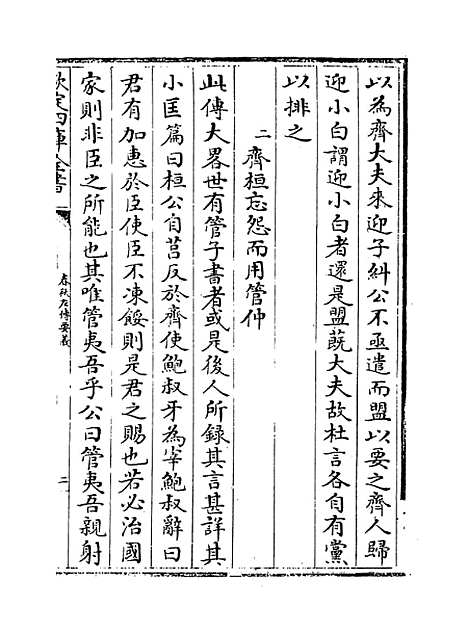 以為齊大夫來迎子糾公不亟遣而盟以要之齊人歸
迎小白謂迎小白者還是盟蔇大夫故杜言各自有黨
以排之
二齊桓忘怨而用管仲
此傳大畧世有管子書者或是後人所録其言甚詳其
小匡篇曰桓公自莒反於齊使鮑叔牙為宰鮑叔辭曰
君有加惠於臣使臣不凍餒則是君之賜也若必治國
家則非臣之所能也其唯管夷吾乎公曰管夷吾親射
欽定四庫全書
春秋左傳要義
二